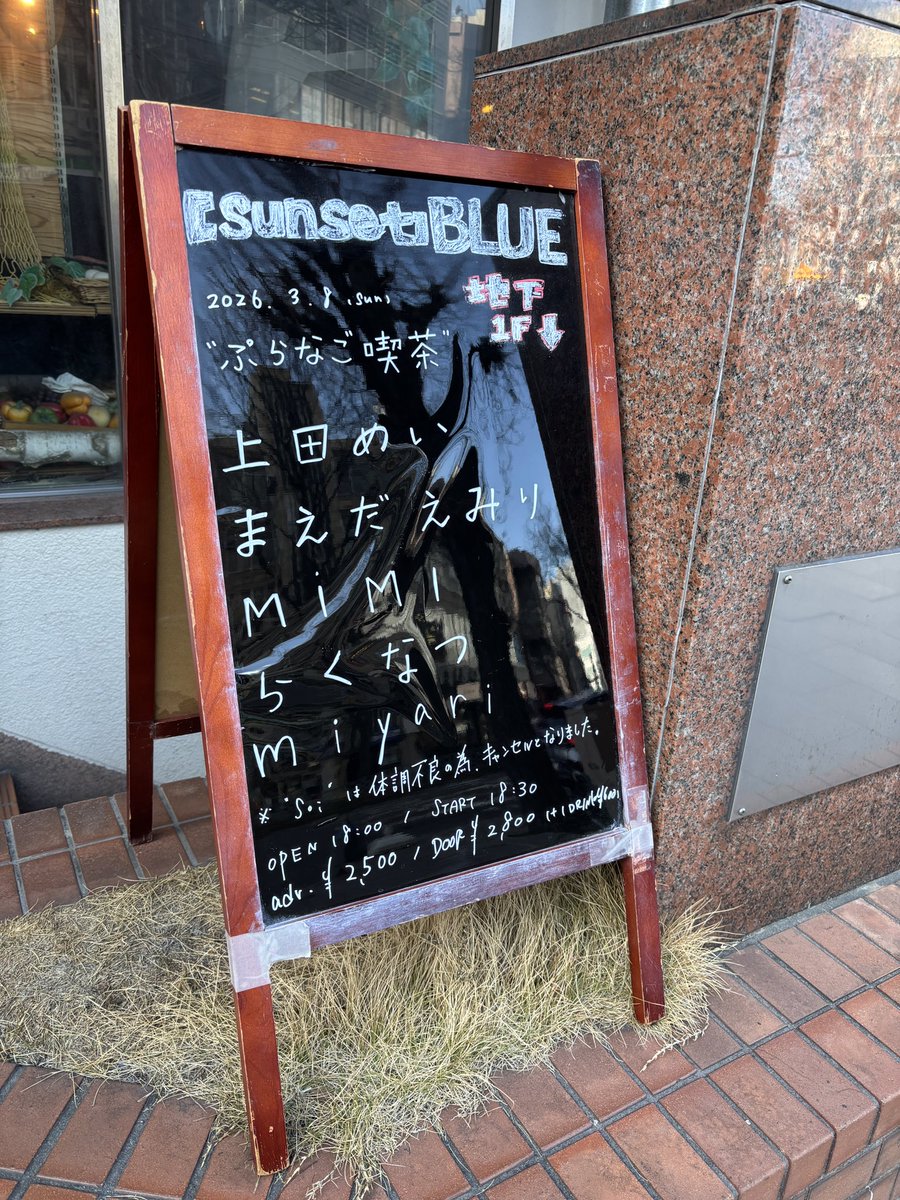 sunset BLUE
地下
1F↓
2026.3.8 (sun)
"ぷらなご喫茶"
上田めい
まえだえみり
MiMI
らくなつ
miyari
※"Soi"は体調不良の為、キャンセルとなりました。
OPEN 18:00 / START 18:30
adv. ¥2,500 / DOOR ¥2,800 (+1DRINK